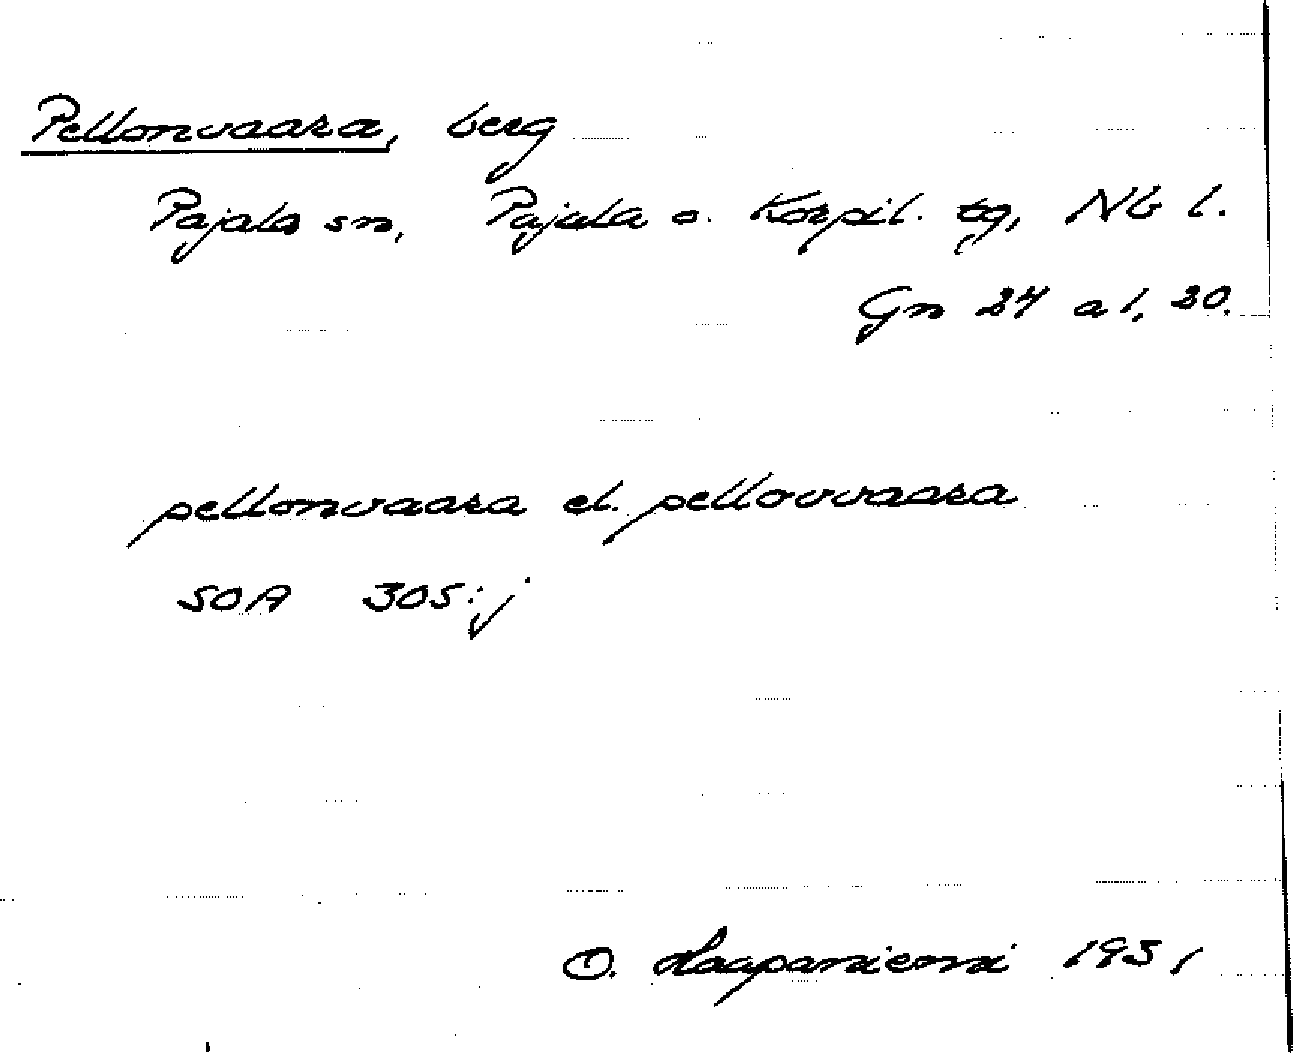 Pellonvaara, berg
Pajala sn, Pajala o. Korpil. tg, Nb l.
Gn 24 a 1, 20.
pellonvaara el. pellovvaara
SOA 305:j
O. Haapaniemi 1951